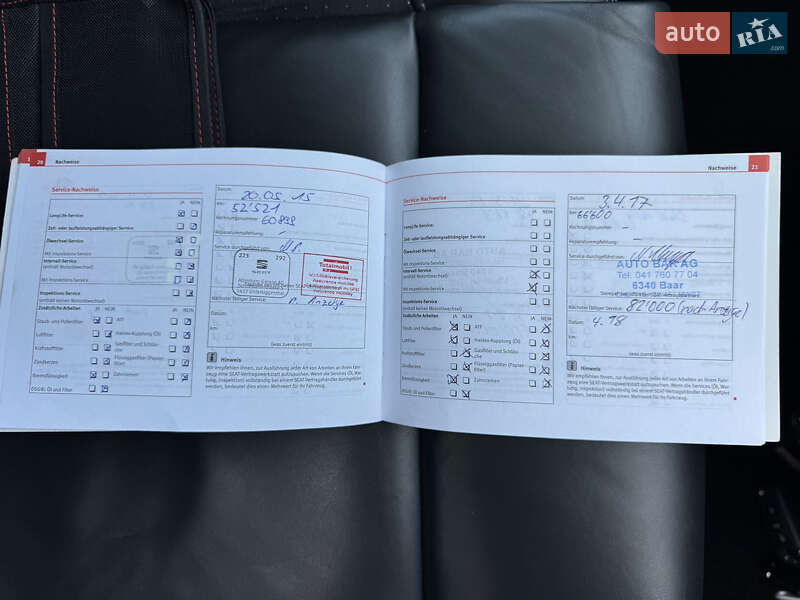 auto RIA.com
20 Nachweise
Service-Nachweise
JA NEIN
LongLife-Service
Zeit- oder laufleistungsabhängiger Service
Ölwechsel-Service
Mit Inspektions-Service
Intervall-Service
(enthält Motorölwechsel)
Mit Inspektions-Service
Inspektions-Service
(enthält keinen Motorölwechsel)
Zusätzliche Arbeiten
JA NEIN JA NEIN
Staub- und Pollenfilter ATF
Luftfilter Haldex-Kupplung (Öl)
Kraftstofffilter Gasfilter und Schläuche
Zündkerzen Flüssiggasfilter (Papierfilter)
Bremsflüssigkeit Zahnriemen
DSG®: Öl und Filter
Datum: 20.05.15
km: 52'521
Rechnungsnummer: 60898
Reparaturempfehlung: -
Service durchgeführt von:
223 292
SEAT
Totalmobil!
Nächster fälliger Service: n. Anzeige
(was zuerst eintritt)
Hinweis
Wir empfehlen Ihnen, zur Ausführung jeder Art von Arbeiten an Ihrem Fahrzeug eine SEAT-Vertragswerkstatt aufzusuchen. Wenn die Services (Öl, Wartung, Inspektion) vollständig bei einem SEAT-Vertragshändler durchgeführt werden, bedeutet dies einen Mehrwert für Ihr Fahrzeug.
Nachweise 21
Service-Nachweise
JA NEIN
LongLife-Service
Zeit- oder laufleistungsabhängiger Service
Ölwechsel-Service
Mit Inspektions-Service
Intervall-Service
(enthält Motorölwechsel)
Mit Inspektions-Service
Inspektions-Service
(enthält keinen Motorölwechsel)
Zusätzliche Arbeiten
JA NEIN JA NEIN
Staub- und Pollenfilter ATF
Luftfilter Haldex-Kupplung (Öl)
Kraftstofffilter Gasfilter und Schläuche
Zündkerzen Flüssiggasfilter (Papierfilter)
Bremsflüssigkeit Zahnriemen
DSG®: Öl und Filter
Datum: 3.4.17
km: 66600
Rechnungsnummer: -
Reparaturempfehlung: -
Service durchgeführt von:
AUTO BAR AG
Tel. 041 760 77 04
6340 Baar
Nächster fälliger Service: 82'000 (nach Anzeige)
Datum: 4.18
(was zuerst eintritt)
Hinweis
Wir empfehlen Ihnen, zur Ausführung jeder Art von Arbeiten an Ihrem Fahrzeug eine SEAT-Vertragswerkstatt aufzusuchen. Wenn die Services (Öl, Wartung, Inspektion) vollständig bei einem SEAT-Vertragshändler durchgeführt werden, bedeutet dies einen Mehrwert für Ihr Fahrzeug.